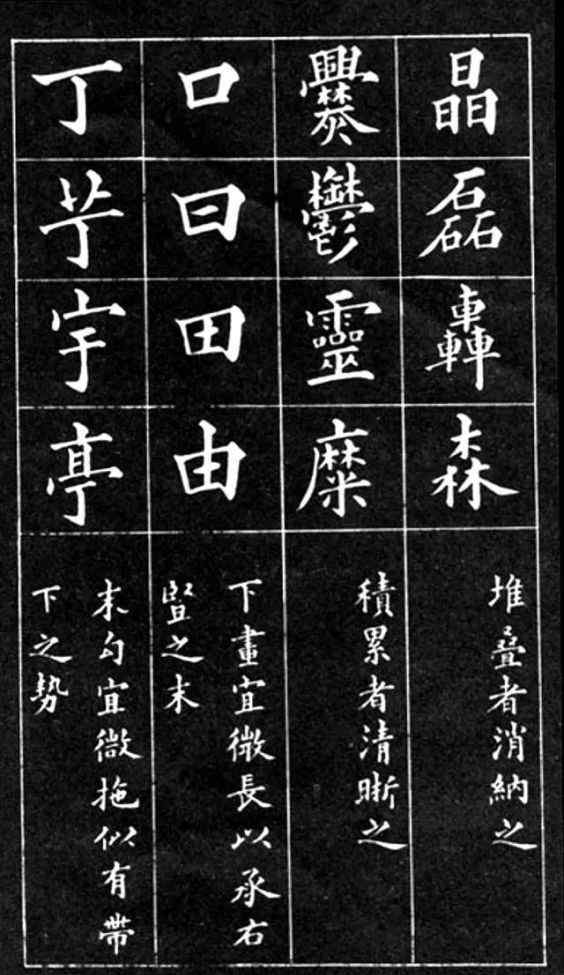 晶磊轟森
堆疊者消納之
爨鬱靈糜
積累者清晰之
口曰田由
下畫宜微長以承右
豎之末
丁芧宇亭
末勾宜微拖似有帶
下之勢